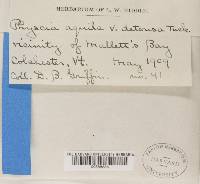 HERBARIUM OF L. W. RIDDLE.
Physcia aquila v. detonsa Tuck.
vicinity of Mallett's Bay
Colchester, Vt. May 1909
Coll. D. B. Griffin. no. 41
HARVARD
UNIVERSITY